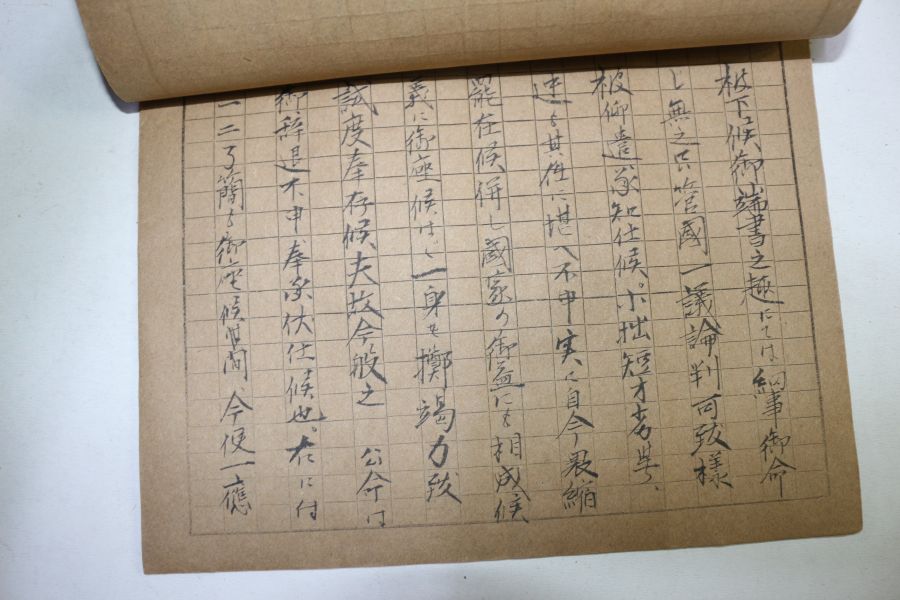 被下候御端書之趣にては細事御命
し無之只管国一議論判可致様
被仰遣承知仕候。小拙短才劣學、
迚も其任に堪へ不申実に自今畏縮
罷在候併し國家の御益にも相成候
義に御座候はゞ一身を擲竭力致
試度奉存候夫故今般之 公命は
御辞退不申奉承伏仕候也。右に付
一二了簡も御座候間、今便一應